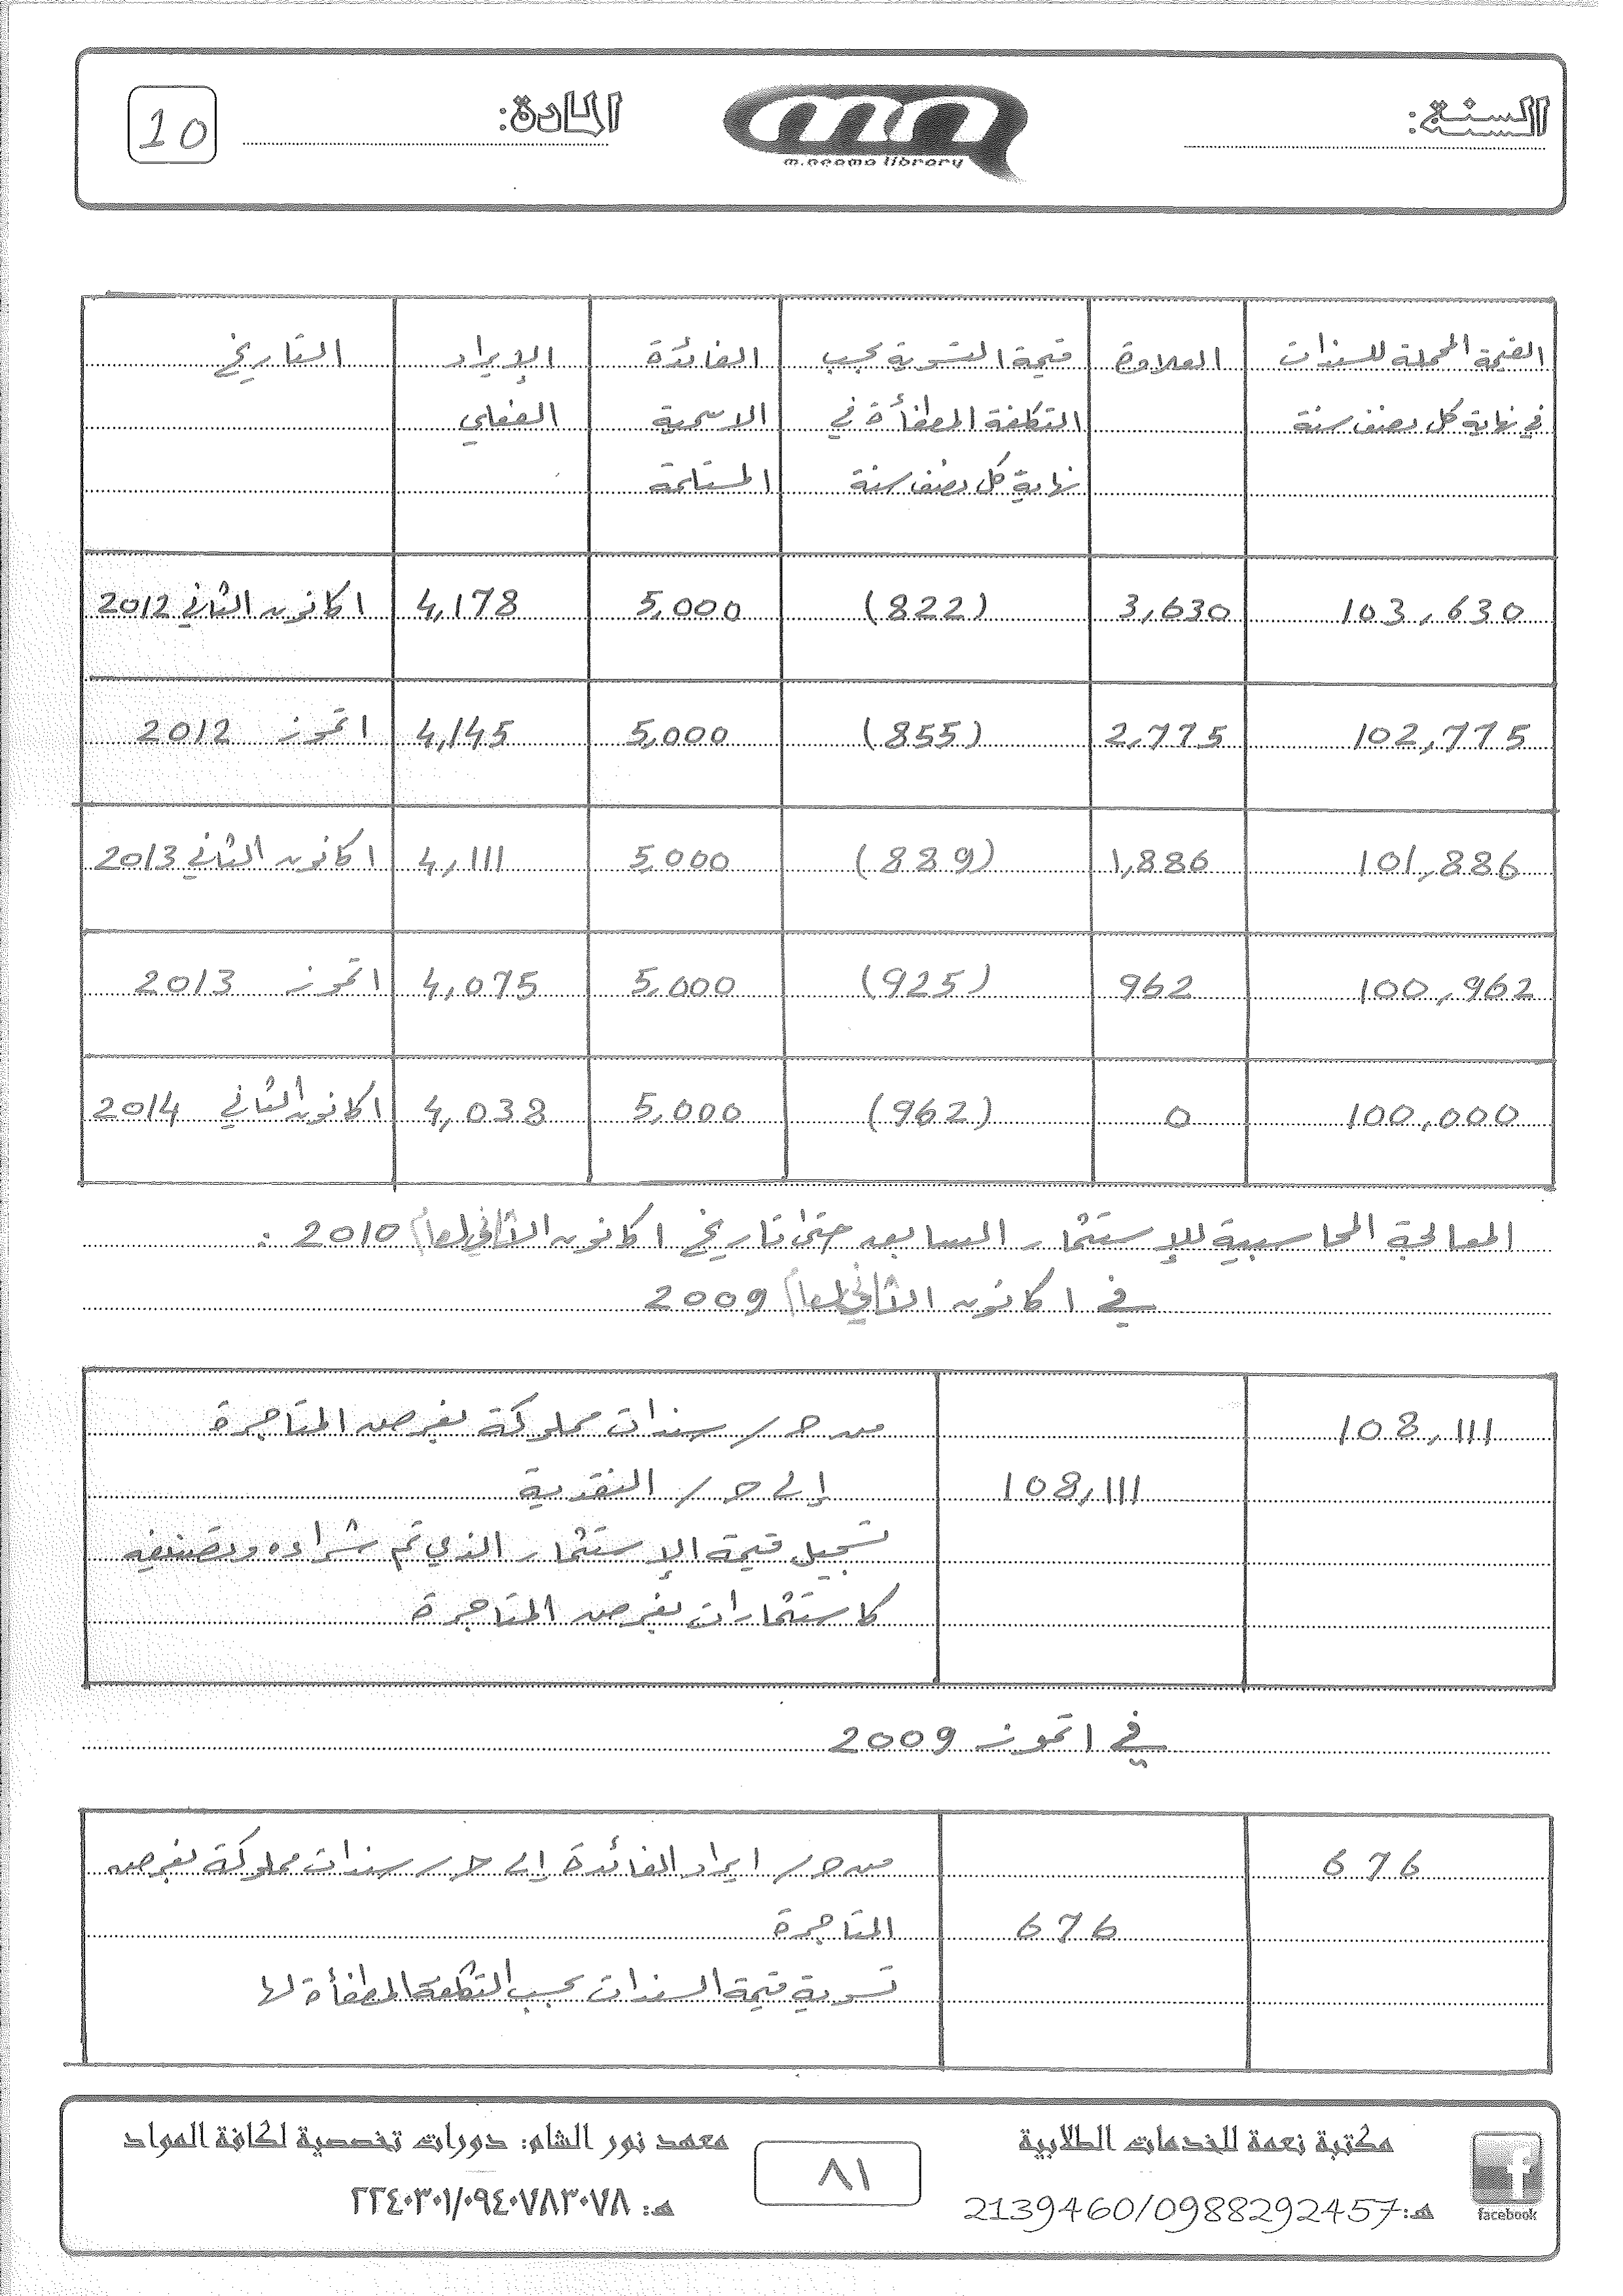 السنة:
m.neama library
المادة:
10
القيمة المحملة للسندات العلاوة قيمة التسوية بحسب الفائدة الإيراد التاريخ
في نهاية كل نصف سنة التكلفة المطفأة في الاسمية الفعلي
نهاية كل نصف سنة المستلمة
103,630 3,630 (822) 5,000 4,178 1 كانون الثاني 2012
102,775 2,775 (855) 5,000 4,145 1 تموز 2012
101,886 1,886 (889) 5,000 4,111 1 كانون الثاني 2013
100,962 962 (925) 5,000 4,075 1 تموز 2013
100,000 0 (962) 5,000 4,038 1 كانون الثاني 2014
المعالجة المحاسبية للإستثمار السابق حتى تاريخ 1 كانون الثاني لعام 2010 :
في 1 كانون الثاني لعام 2009
108,111 من حـ/ سندات مملوكة بغرض المتاجرة
108,111 إلى حـ/ النقدية
تسجيل قيمة الإستثمار الذي تم شراءه وتصنيفه
كاستثمارات بغرض المتاجرة
في 1 تموز 2009
676 من حـ/ ايراد الفائدة إلى حـ/ سندات مملوكة بغرض
676 المتاجرة
تسوية قيمة السندات بحسب التكلفة المطفأة لها
facebook
مكتبة نعمة للخدمات الطلابية
هـ:2139460/0988292457
٨١
معهد نور الشام: دورات تخصصية لكافة المواد
هـ: ٢٢٤٠٣٠١/٠٩٤٠٧٨٣٠٧٨